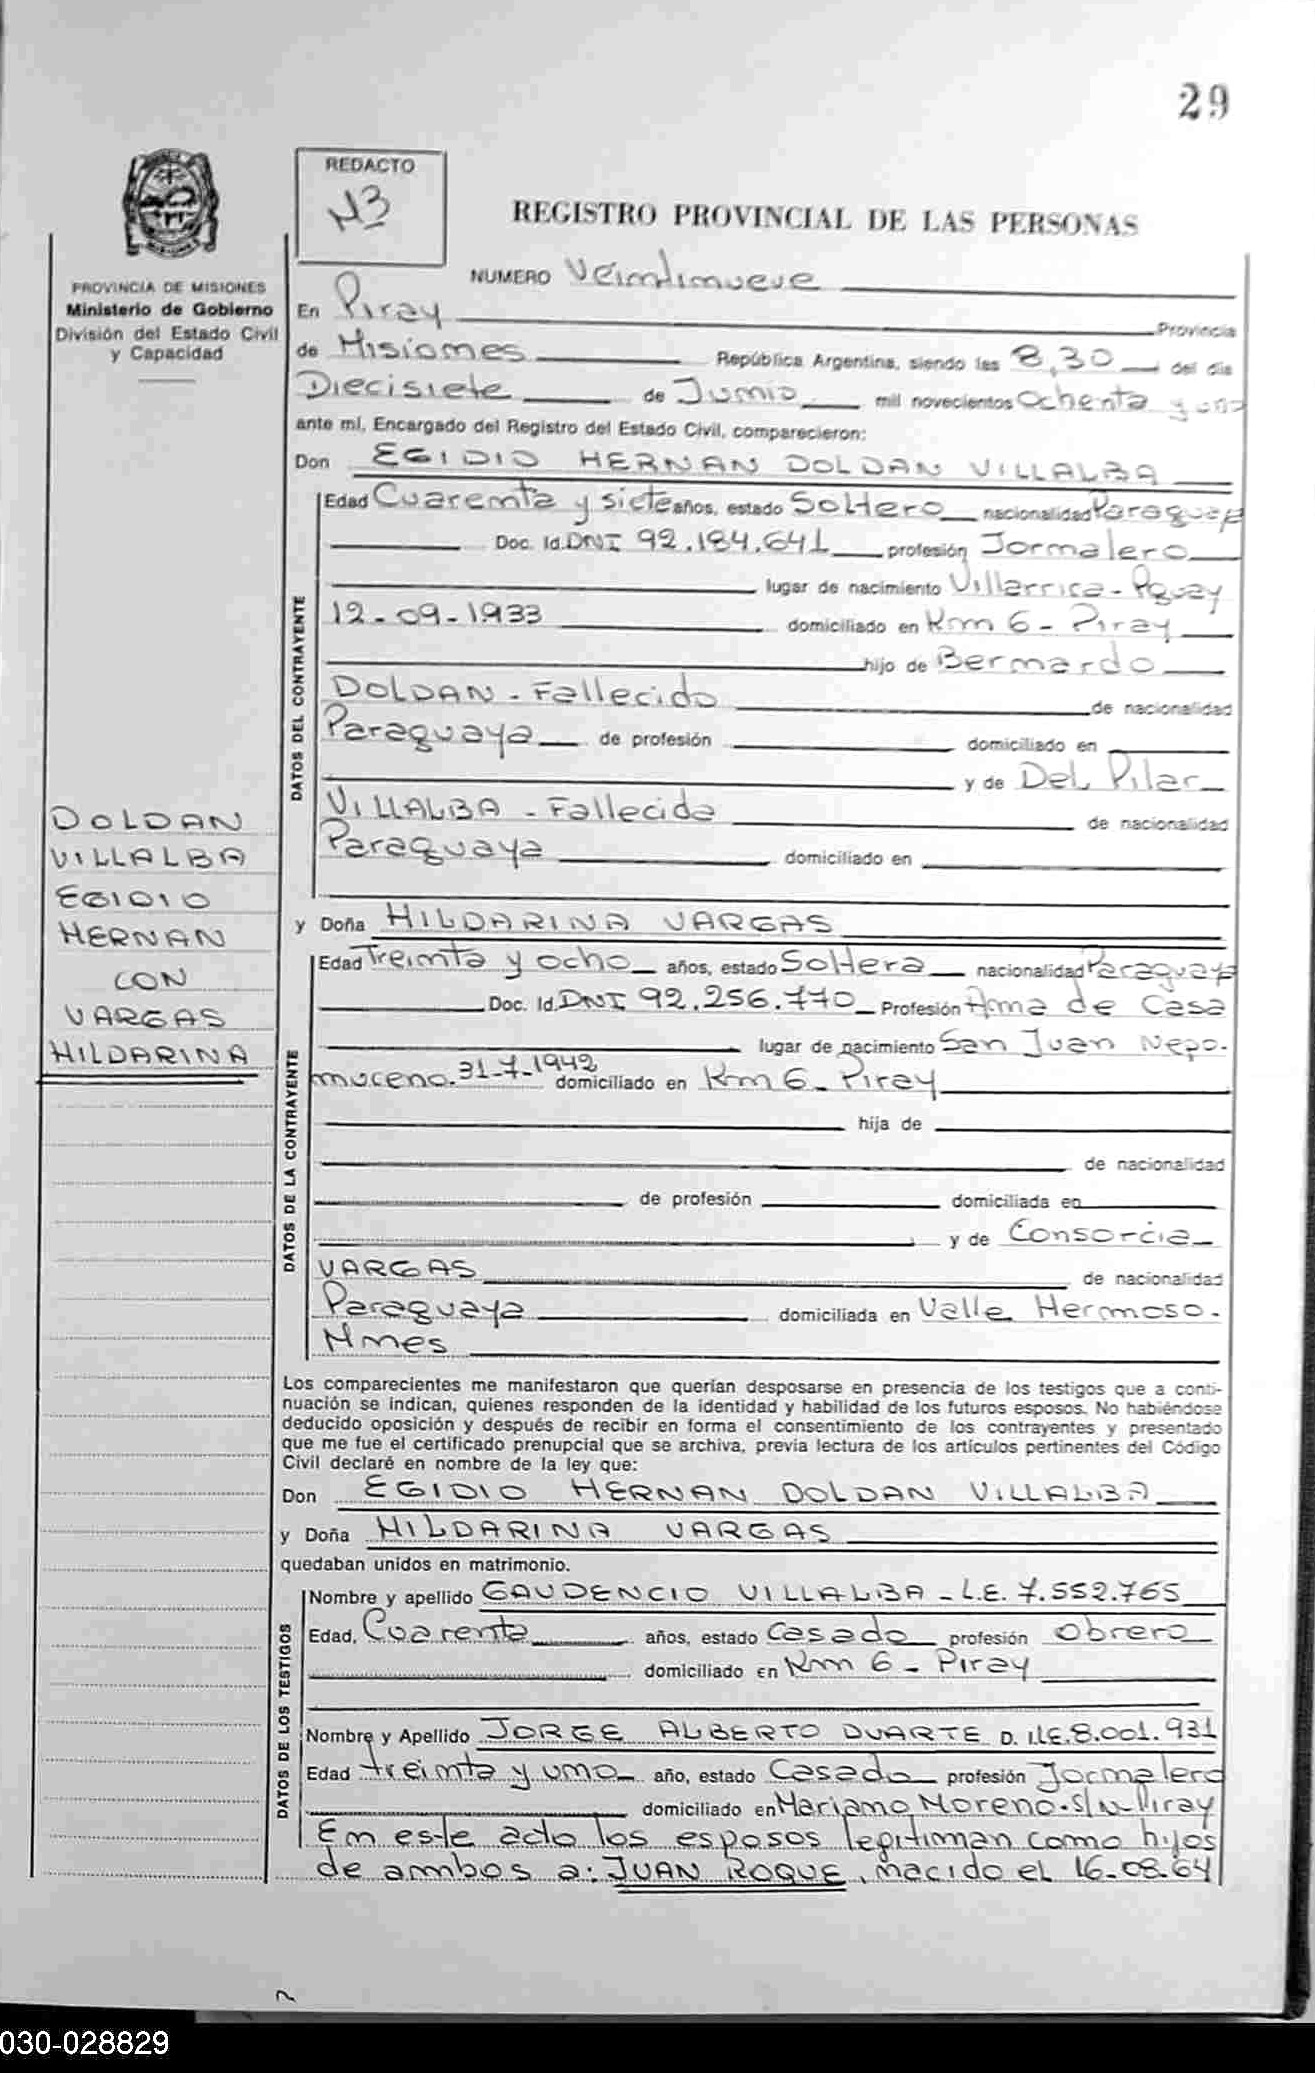 29
REDACTO
REGISTRO PROVINCIAL DE LAS PERSONAS
PROVINCIA DE MISIONES
Ministerio de Gobierno
División del Estado Civil
y Capacidad
NUMERO Veintinueve
En Piray Provincia
de Misiones República Argentina, siendo las 8,30 del día
Diecisiete de Junio mil novecientos Ochenta y uno
ante mí, Encargado del Registro del Estado Civil, comparecieron:
Don EGIDIO HERNAN DOLDAN VILLALBA
DATOS DEL CONTRAYENTE
Edad Cuarenta y siete años, estado Soltero nacionalidad Paraguay
Doc. Id. DNI 92.184.641 profesión Jornalero
lugar de nacimiento Villarrica - Pguay
12-09-1933 domiciliado en Km 6 - Piray
hijo de Bernardo
DOLDAN - Fallecido de nacionalidad
Paraguaya de profesión domiciliado en
y de Del Pilar
VILLALBA - Fallecida de nacionalidad
Paraguaya domiciliado en
DOLDAN
VILLALBA
EGIDIO
HERNAN
CON
VARGAS
HILDARINA
y Doña HILDARINA VARGAS
DATOS DE LA CONTRAYENTE
Edad Treinta y ocho años, estado Soltera nacionalidad Paraguaya
Doc. Id. DNI 92.256.770 Profesión Ama de Casa
lugar de nacimiento San Juan Nepo-
muceno. 31-7-1942 domiciliado en Km 6 - Piray
hija de
de nacionalidad
de profesión domiciliada en
y de Consorcia
VARGAS de nacionalidad
Paraguaya domiciliada en Valle Hermoso -
Mnes
Los comparecientes me manifestaron que querían desposarse en presencia de los testigos que a conti-
nuación se indican, quienes responden de la identidad y habilidad de los futuros esposos. No habiéndose
deducido oposición y después de recibir en forma el consentimiento de los contrayentes y presentado
que me fue el certificado prenupcial que se archiva, previa lectura de los artículos pertinentes del Código
Civil declaré en nombre de la ley que:
Don EGIDIO HERNAN DOLDAN VILLALBA
y Doña HILDARINA VARGAS
quedaban unidos en matrimonio.
DATOS DE LOS TESTIGOS
Nombre y apellido GAUDENCIO VILLALBA - L.E. 7.552.765
Edad, Cuarenta años, estado Casado profesión Obrero
domiciliado en Km 6 - Piray
Nombre y Apellido JORGE ALBERTO DUARTE 8.001.931
Edad treinta y uno año, estado Casado profesión Jornalero
domiciliado en Mariano Moreno - S/N - Piray
En este acto los esposos legitiman como hijos
de ambos a: JUAN ROQUE, nacido el 16-08-64
030-028829